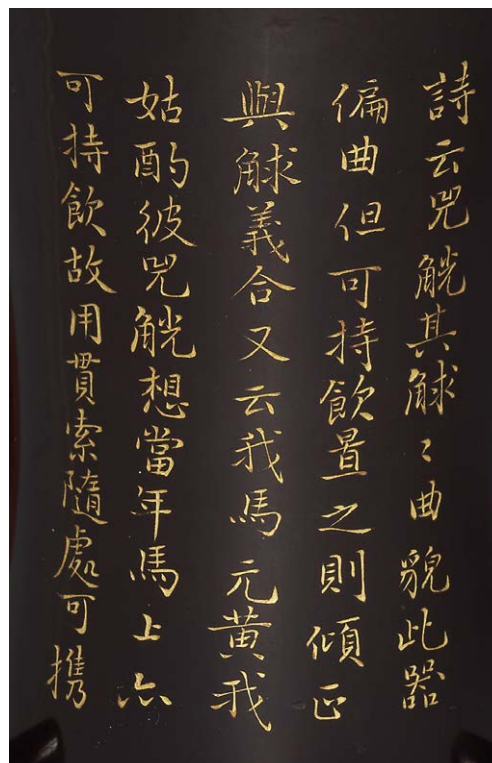 詩云兕觥其觩〻曲貌此器
偏曲但可持飲置之則傾正
與觩義合又云我馬元黃我
姑酌彼兕觥想當年馬上亦
可持飲故用貫索隨處可携